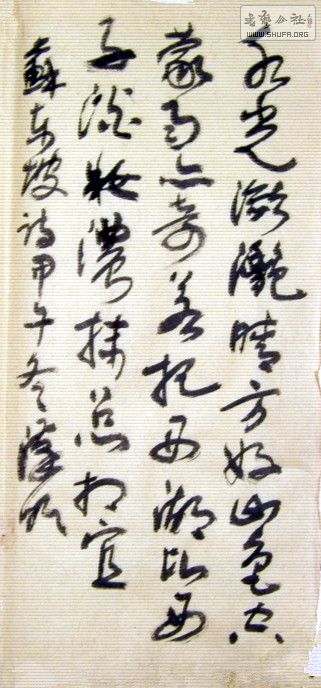 水光瀲灩晴方好山色空
蒙雨亦奇若把西湖比西
子淡妝濃抹總相宜
蘇東坡詩甲午冬
書藝公社
WWW.SHUFA.ORG